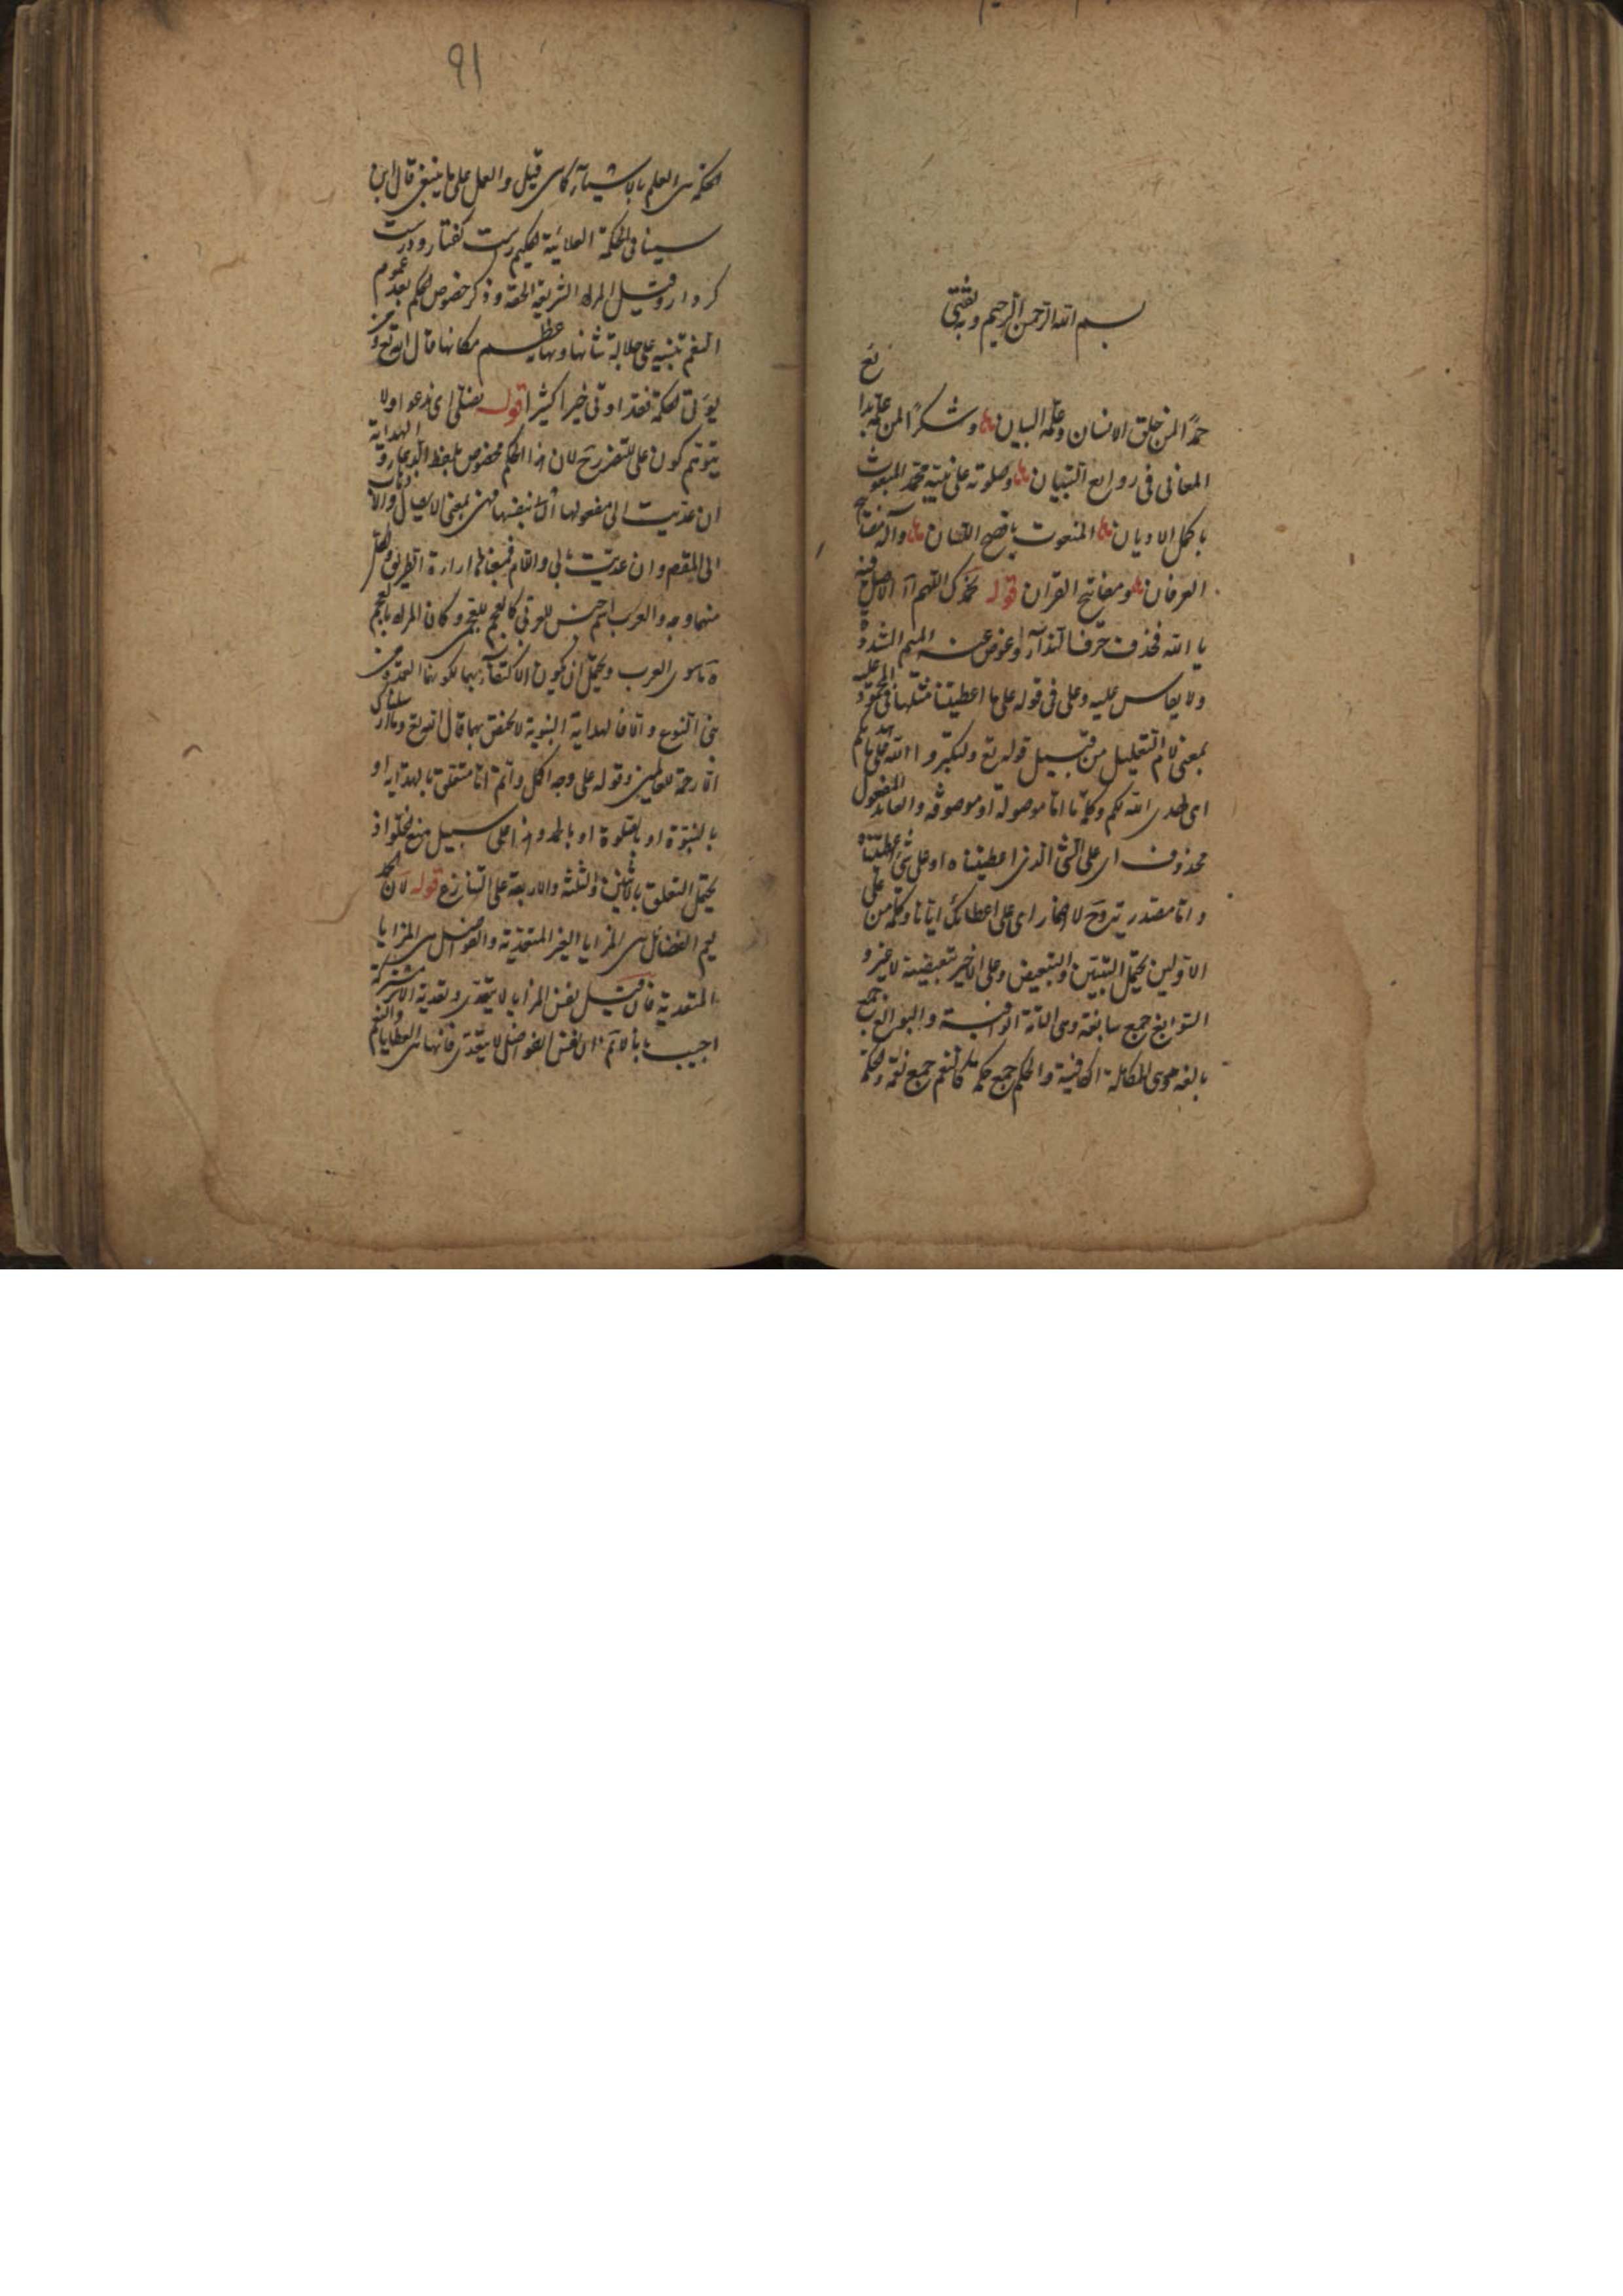 بسم الله الرحمن الرحيم وبه ثقتى
حمدا لمن خلق الانسان وعلمه البيان وشكرا لمن علمه
المعانى فى روايع التبيان وصلوته على نبيه محمد المبعوث
باكمل الاديان المنعوت بافصح اللسان وآله مصابيح
العرفان ومفاتيح القران قوله نحمدك اللهم آه الاصل فيه
يا الله فحذف حرف النداء وعوض عنه الميم المشددة
ولا يقاس عليه وعلى فى قوله على ما اعطيتنا مثلها فى المحمود عليه
بمعنى لام التعليل من قبيل قوله تع ولتكبروا الله على ما هديكم
اى لهدى الله لكم وكلمة ما اما موصولة او موصوفة والعائد المفعول
محذوف اى على الشئ الذى اعطيناه او على شئ اعطيتناه
واما مصدرية وح لا اضمار اى على اعطائك ايانا وكلمة من على
الاولين يحتمل التبيين والتبعيض وعلى الاخير تبعيضية لا غير و
السوابغ جمع سابغة وهى التامة الوافية والبوالغ جمع
بالغة وهى الكاملة الكافية والحكم جمع حكمة كالنعم جمع نعمة والحكمة
٩١
الحكمة هى العلم بالاشياء كما هى قيل والعمل على ما ينبغى قال ابن
سينا فى الحكمة العلائية حكيم رست كفتار ودرست
كردار وقيل المراد الشريعة الحقة وذكر خصوص الحكم بعد عموم
النعم تنبيه على جلالة شانها وعظيم مكانها قال الله تع ومن
يؤتى الحكمة فقد اوتى خيرا كثيرا قوله نصلى اى ندعو اولا
يتوهم كون على للتضرر لان هذا الحكم مخصوص بلفظ الدعاء والهداية
ان عديت الى مفعولها الثانى بنفسها فهى بمعنى الايصال
الى المقصد وان عديت بالى واللام فمعناها اراءة الطريق
منهما وجه والعرب اسم جنس للعربى كالعجم للعجمى وكان المراد بالعجم
ما سوى العرب ويحتمل ان يكون الاكتفاء بهما لكونهما العمدة من
بنى النوع والا فالهداية النبوية لا تختص بهما قال الله تع وما ارسلناك
الا رحمة للعالمين وقوله على وجه اكمل واتم اما متعلق بالهداية او
بالنبوة او بالصلوة او بالحمد وهذا على سبيل منع الخلو اذ
يحتمل التعلق بالاثنين والثلثة والاربعة على التنازع قوله لان الحمد
يعم الفضائل هى المزايا الغير المتعدية والفواضل هى المزايا
المتعدية فان قيل نفس المزايا لا يتعدى وتعدية الاثر مشتركة
اجيب بانا لا نم ان نفس الفواضل لا يتعدى فانها هى العطايا والنعم